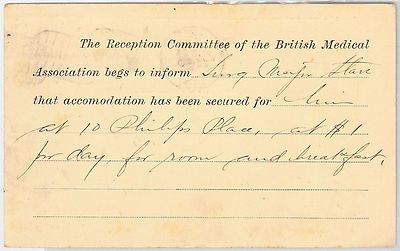 The Reception Committee of the British Medical
Association begs to inform Surg Major Stare
that accomodation has been secured for him
at 10 Philips Place, at $1
per day, for room and breakfast.